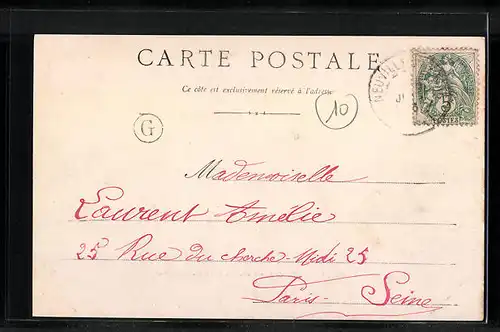 CARTE POSTALE
Ce côté est exclusivement réservé à l'adresse
10
G
NEUVILL
5
POSTES
Mademoiselle
Laurent Amélie
25 Rue du cherche-Midi 25
Paris - Seine